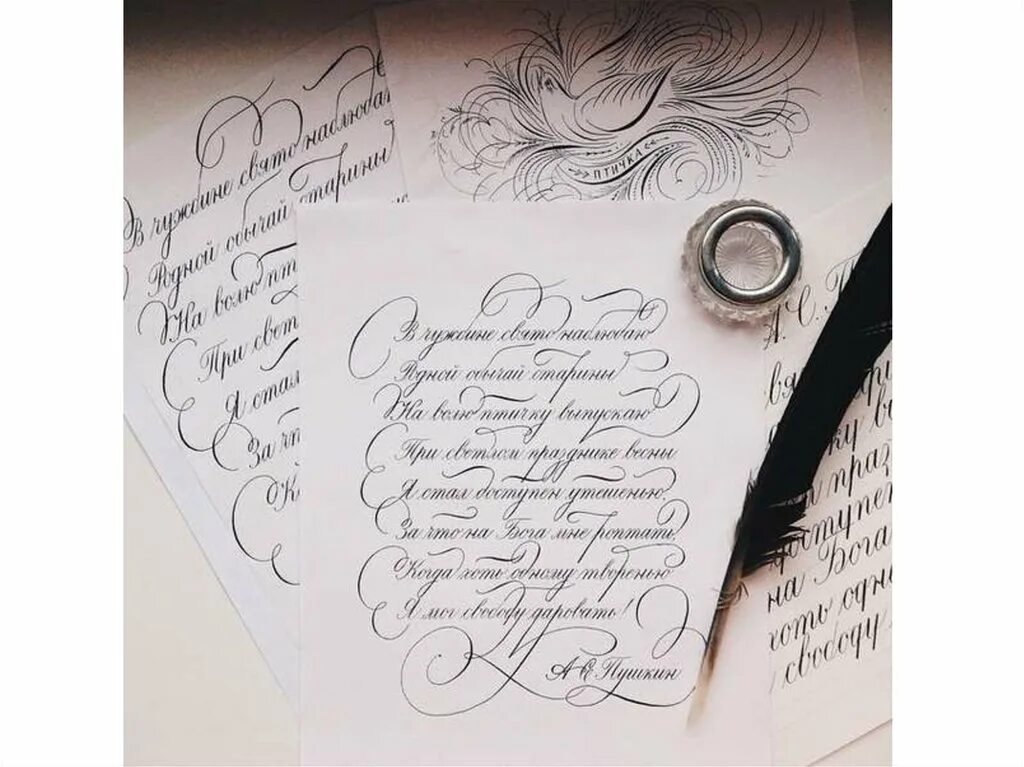 В чужбине свято наблюдаю
Родной обычай старины
На волю пт
При свет
Я стал
За чт
К
ПТИЧКА
В чужбине свято наблюдаю
Родной обычай старины
На волю птичку выпускаю
При светлом празднике весны
Я стал доступен утешенью,
За что на Бога мне роптать,
Когда хоть одному творенью
Я мог свободу даровать!
А С Пушкин
А. С. П
ку в
праз
доступен
на Бога
хоть одн
свободу